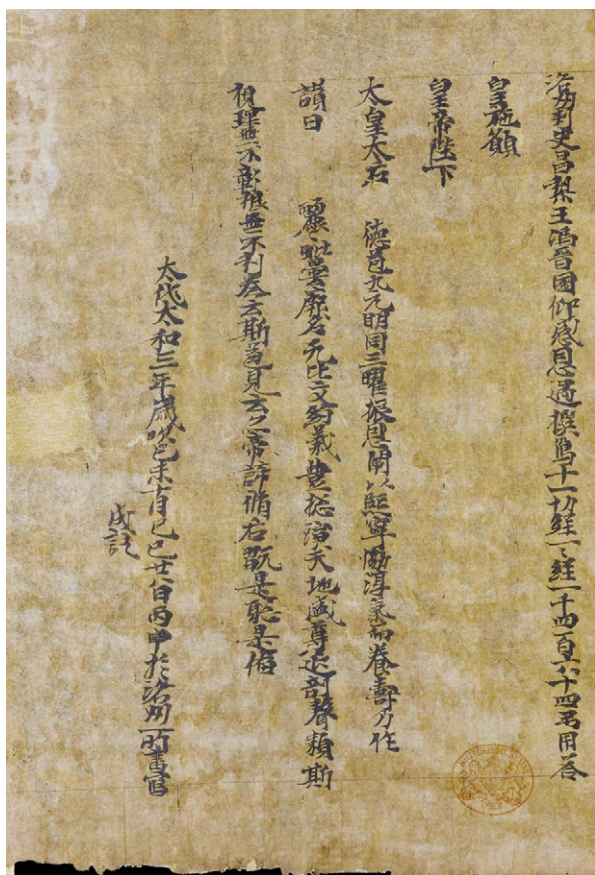 洛州刾史昌梨王馮晉國仰感恩遇撰寫十一切經一一經一千四百六十四卷用荅
皇施願
皇帝陛下
太皇太后 德苞九元明同三曜振恩闡以熈寧協淳氣而養壽乃作
讃曰 麗麗毗曇厥名无比文約義豊揔演天地盛尊延剖聲類斯
視理无不彰根无不利卷云斯苞見云亦帝諦脩后翫是聡是俻
大代太和三年歲次己未十月己巳廿八日丙申於洛州所書寫
成訖